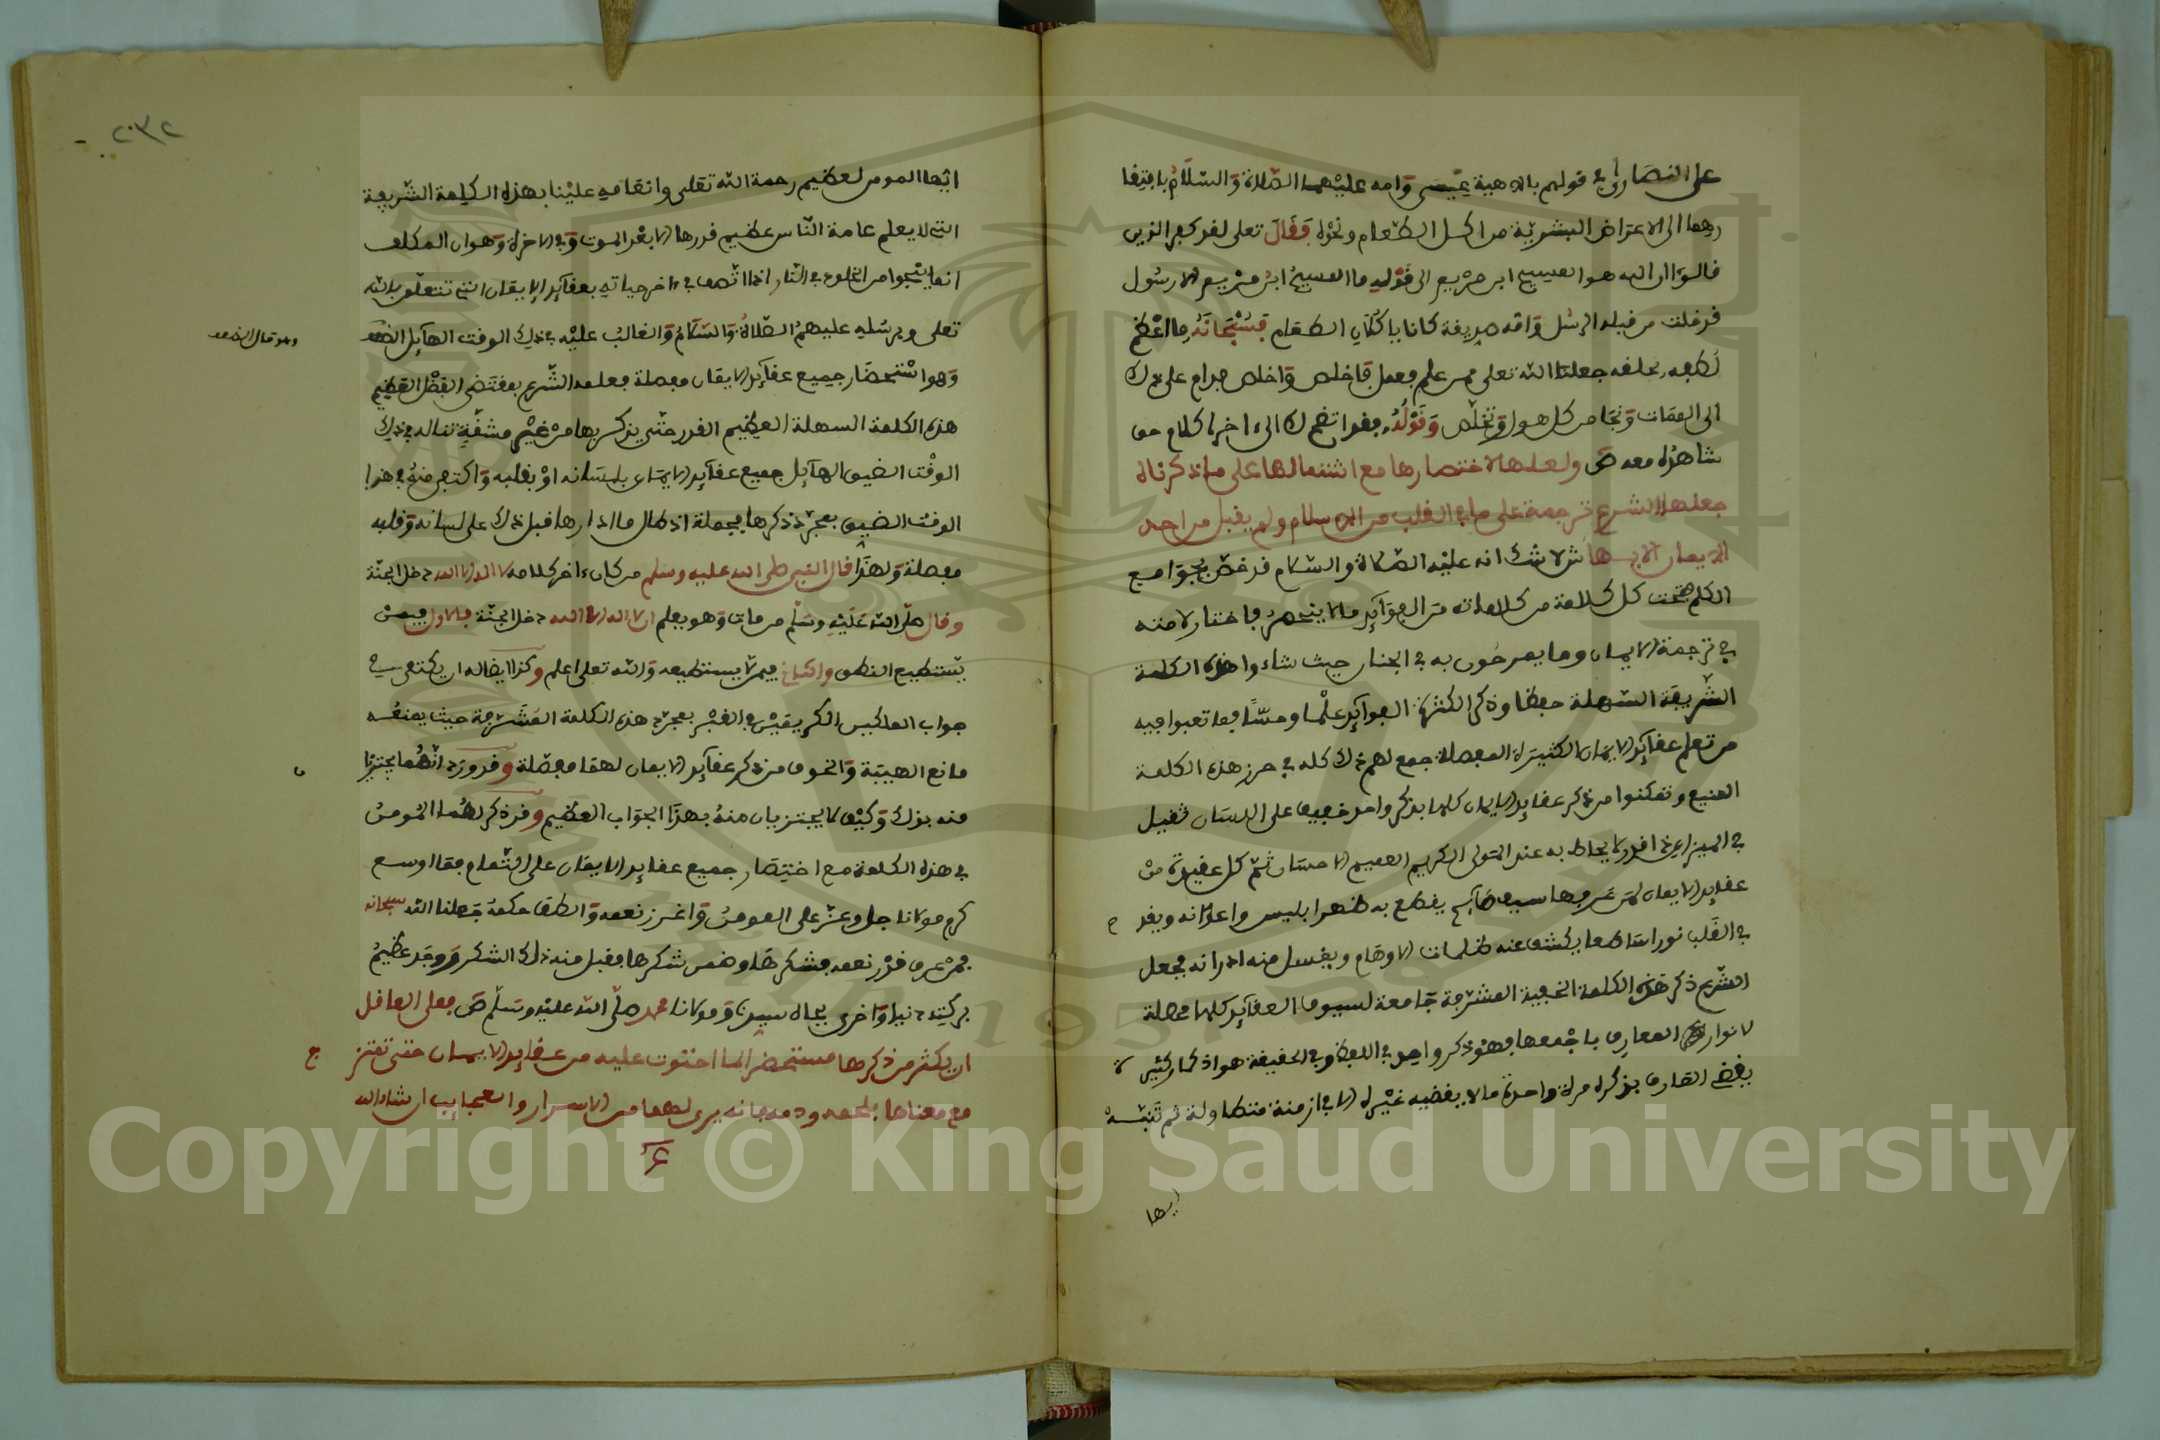 على النصارى في قولهم بالاهية عيسى وامه عليهما الصلاة والسلام بافتقا
رهما الى الاعراض البشرية من اكل الطعام ونحوه فقال تعلى لقد كفر الذين
قالوا ان الله هو المسيح ابن مريم الى قوله ما المسيح ابن مريم الا رسول
قد خلت من قبله الرسل وامه صديقة كانا ياكلان الطعام فسبحانه ما اعظم
لطفه بخلقه جعلنا الله تعلى ممن علم فعمل فاخلص واخلص فدام على ذلك
الى الممات ونجا من كل هول وتخلص وقوله فقد اتضح لك الى اخر الكلام حق
شاهده معه ص ولعلها لاختصارها مع اشتمالها على ما ذكرناه
جعلها الشرع ترجمة على ما في القلب من الاسلام ولم يقبل من احد
الايمان الا بها ش لا شك انه عليه الصلاة والسلام قد خص بجوامع
الكلم فتحت كل كلمة من كلماته من الفوايد ما لا ينحصر فاختار لامته
في ترجمة الايمان وما يمرحون به في الجنان حيث شاءوا هذه الكلمة
الشريفة السهلة حفظا وذكرا الكثيرة الفوايد علما وحسا فما تعبوا فيه
من تعلم عقايد الايمان الكثيرة المفصلة جمع لهم ذلك كله في حرز هذه الكلمة
المنيع وتمكنوا من ذكر عقايد الايمان كلها بذكر واحد خفيف على اللسان ثقيل
في الميزان ذا قدر لا يحاط به عند المولى الكريم العميم الاحسان ثم كل عقيدة من
عقايد الايمان لمن عرفها سيف صارم يقطع به ظهر ابليس واعوانه ويقد
في القلب نورا ساطعا يكشف عنه ظلمات الاوهام ويغسل منه ادرانه فجعل
الشرع ذكر هذه الكلمة الخفيفة المشرفة جامعة لسيوف العقايد كلها محصلة
لانوار المعارف باجمعها فهو ذكر واحد في اللفظ وفي الحقيقة هو اذكار كثيرة
يقضي العارف بذكره مرة واحدة ما لا يقضيه غيره الا في ازمنة متطاولة ثم تنبه
ايها
٢٠٣٢
ايها المومن لعظيم رحمة الله تعلى وانعامه علينا بهذه الكلمة الشريفة
التي لا يعلم عامة الناس عظيم قدرها الا بعد الموت وفي الاخرة وهو ان المكلف
انما ينجوا من الخلود في النار اذا اتصف في ءاخر حياته بعقايد الايمان التي تتعلق بالله
تعلى وبرسله عليهم الصلاة والسلام والغالب عليه في ذلك الوقت الهايل الضعف
وهو استحضار جميع عقايد الايمان مفصلة فعلمه الشرع بمقتضى الفضل العظيم
هذه الكلمة السهلة العظيم القدر حتى يذكر بها من غير مشقة تناله في ذلك
الوقت الضيق الهايل جميع عقايد الايمان بلسانه او بقلبه واكتفى منه في هذا
الوقت الضيق بمجرد ذكرها مجملة اذ طال ما ادارها قبل ذلك على لسانه وقلبه
مفصلة ولهذا قال النبي صلى الله عليه وسلم من كان ءاخر كلامه لا اله الا الله دخل الجنة
وقال صلى الله عليه وسلم من مات وهو يعلم ان لا اله الا الله دخل الجنة فالاول فيمن
يستطيع النطق والثاني فيمن لا يستطيعه والله تعلى اعلم وكذا ايضا له ان يكتفي في
جواب الملكين الكريمين في القبر بمجرد هذه الكلمة المشرفة حيث يمنعه
مانع الهيبة والخوف من ذكر عقايد الايمان لهما مفصلة وقد ورد انهما يجتزيا
منه بذلك وكيف لا يجتزيان منه بهذا الجواب العظيم وقد ذكر لهما المومن
في هذه الكلمة مع اختصار جميع عقايد الايمان على التمام فما اوسع
كرم مولانا جل وعز على المومن واغزر نعمه والطف حكمه جعلنا الله سبحانه
ممن عرف قدر نعمه فشكرها وفهمن شكرها فقبل منه ذلك الشكر ووجد عظيم
بركته دنيا واخرى بجاه سيدنا ومولانا محمد صلى الله عليه وسلم ص فعلى العاقل
ان يكثر من ذكرها مستحضرا لما احتوت عليه من عقايد الايمان حتى تمتزج
مع معناها بلحمه ودمه فانه يرى لها من الاسرار والعجايب ان شاء الله